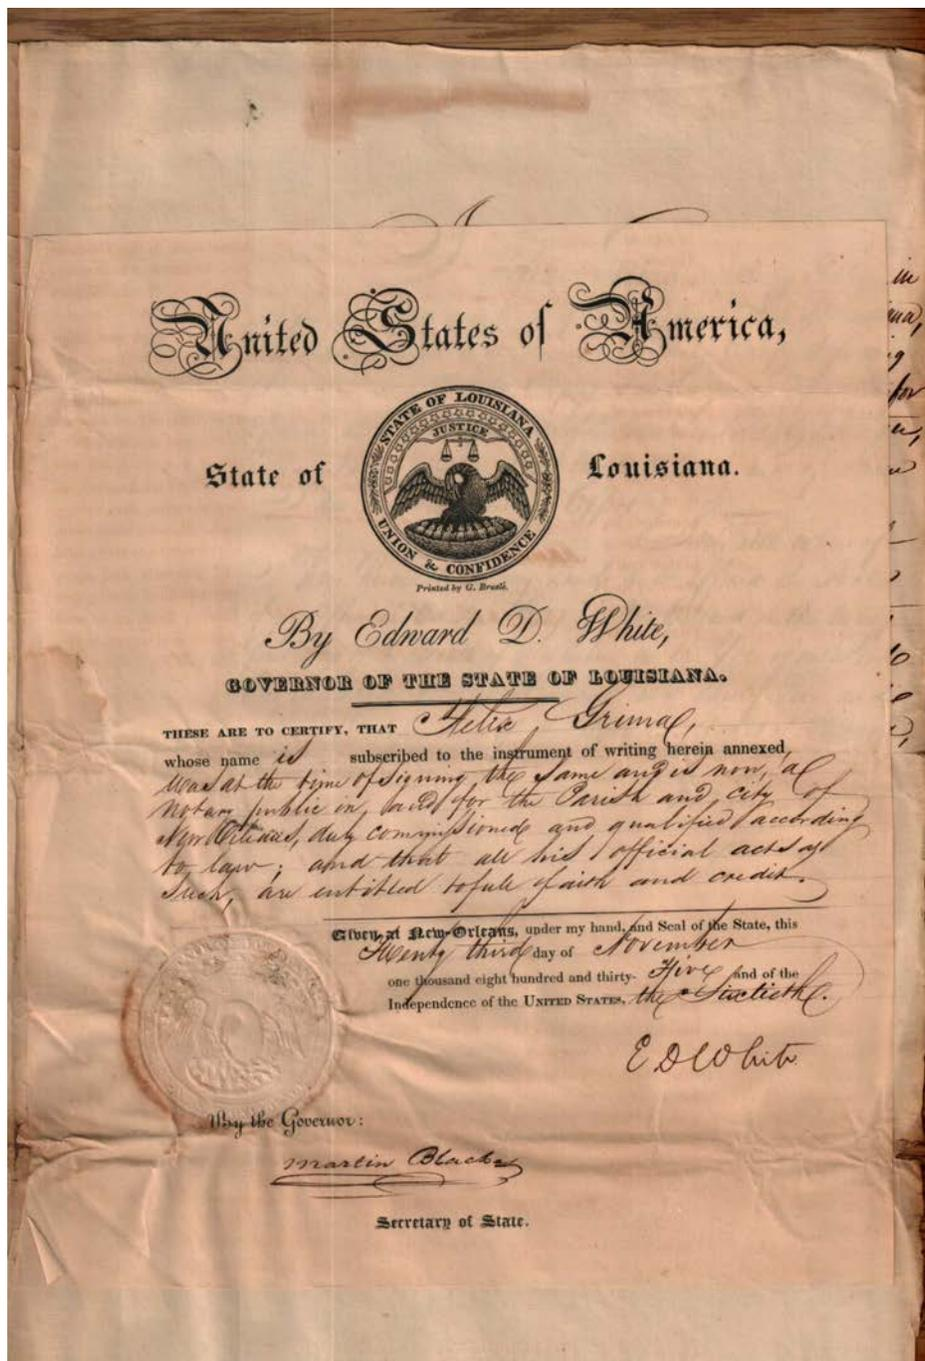 in
United States of America,
for
STATE OF LOUISIANA
JUSTICE
State of Louisiana.
UNION & CONFIDENCE
Printed by G. Bruslé.
By Edward D. White,
GOVERNOR OF THE STATE OF LOUISIANA.
THESE ARE TO CERTIFY, THAT Felix Grima,
whose name is subscribed to the instrument of writing herein annexed,
was at the time of signing the same and is now, a
notary public in, and for the Parish and city of
New Orleans, duly commissioned and qualified according
to law; and that all his official acts as
such, are entitled to full faith and credit.
Given at New-Orleans, under my hand, and Seal of the State, this
Twenty third day of November
one thousand eight hundred and thirty- Five and of the
Independence of the UNITED STATES, the Sixtieth.
E D White
By the Governor:
Martin Blache
Secretary of State.